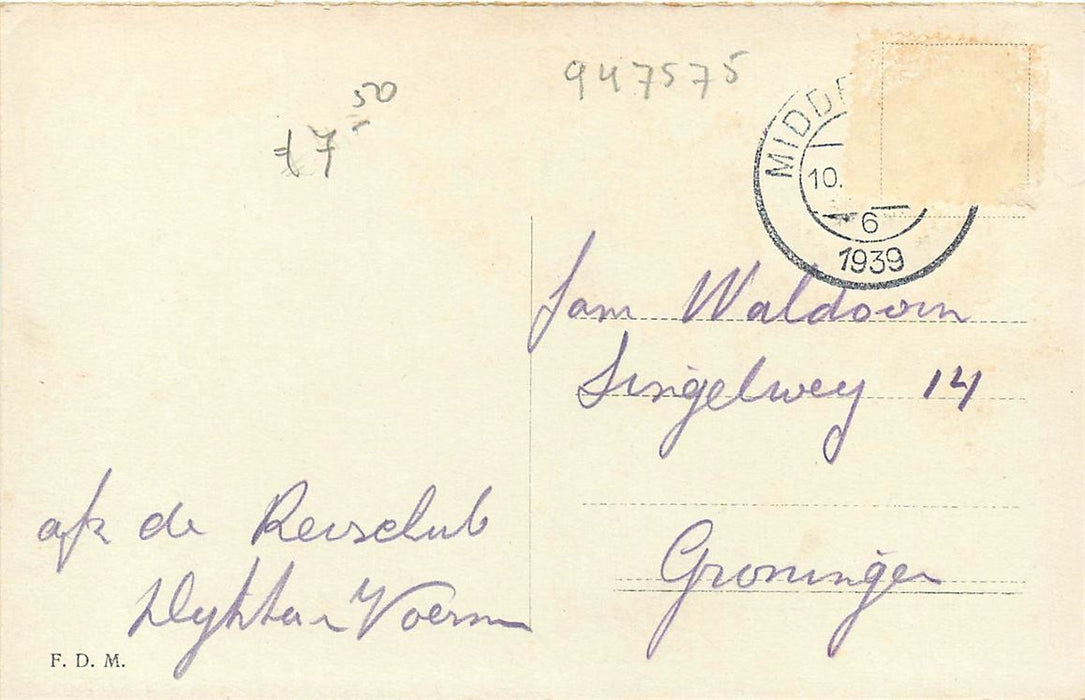 947575
£7 50
MIDD
10.
6
1939
Fam Waldoorn
Singelwey 14
Groningen
afz de Reisclub
Voerm
F. D. M.